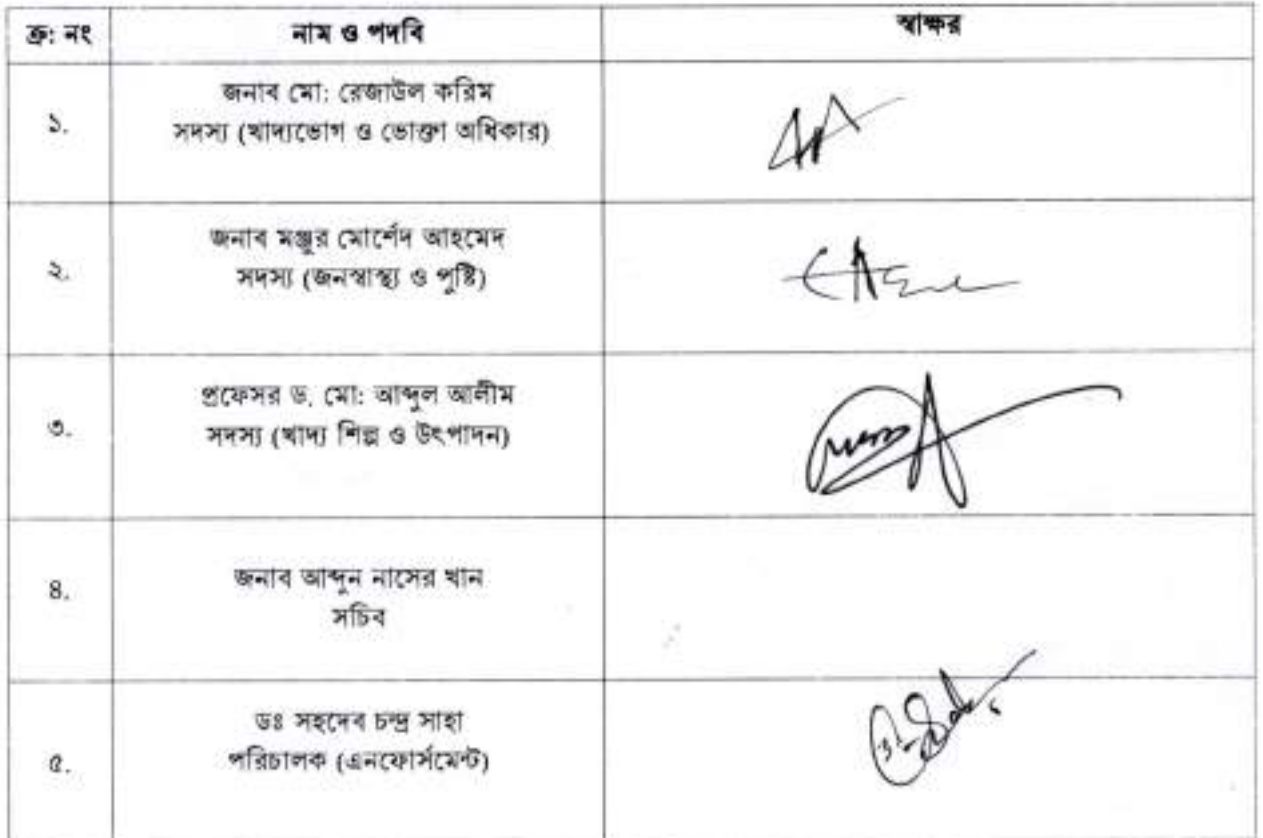 ক্র: নং নাম ও পদবি স্বাক্ষর
১. জনাব মো: রেজাউল করিম
সদস্য (খাদ্যভোগ ও ভোক্তা অধিকার)
২. জনাব মঞ্জুর মোর্শেদ আহমেদ
সদস্য (জনস্বাস্থ্য ও পুষ্টি)
৩. প্রফেসর ড. মো: আব্দুল আলীম
সদস্য (খাদ্য শিল্প ও উৎপাদন)
৪. জনাব আব্দুন নাসের খান
সচিব
৫. ডঃ সহদেব চন্দ্র সাহা
পরিচালক (এনফোর্সমেন্ট)